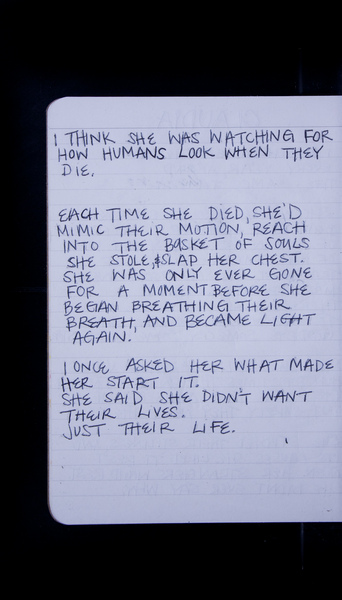 I THINK SHE WAS WATCHING FOR
HOW HUMANS LOOK WHEN THEY
DIE.
EACH TIME SHE DIED, SHE'D
MIMIC THEIR MOTION, REACH
INTO THE BASKET OF SOULS
SHE STOLE, & SLAP HER CHEST.
SHE WAS ONLY EVER GONE
FOR A MOMENT BEFORE SHE
BEGAN BREATHING THEIR
BREATH, AND BECAME LIGHT
AGAIN.
I ONCE ASKED HER WHAT MADE
HER START IT.
SHE SAID SHE DIDN'T WANT
THEIR LIVES.
JUST THEIR LIFE.